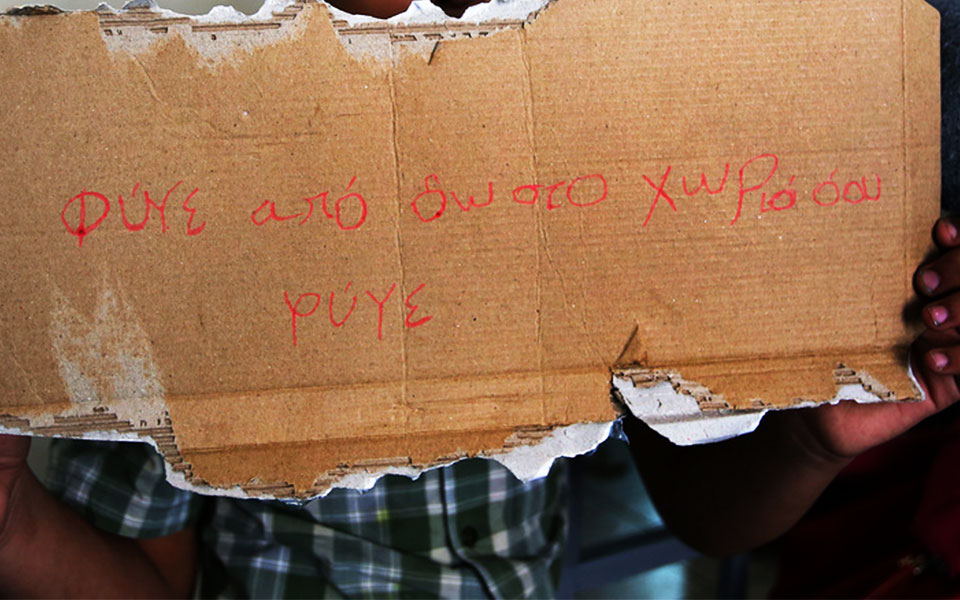 Φύγε από δω στο χωριό σου
φύγε